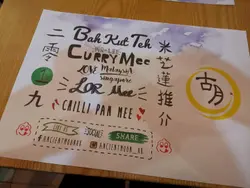 二零
九
Bak Kut Teh
CURRY Mee
LOVE Malaysia
Singapore
LOR Mee
CHILLI PAN MEE
LIKE IT
SHARE
米芝蓮推介
胡